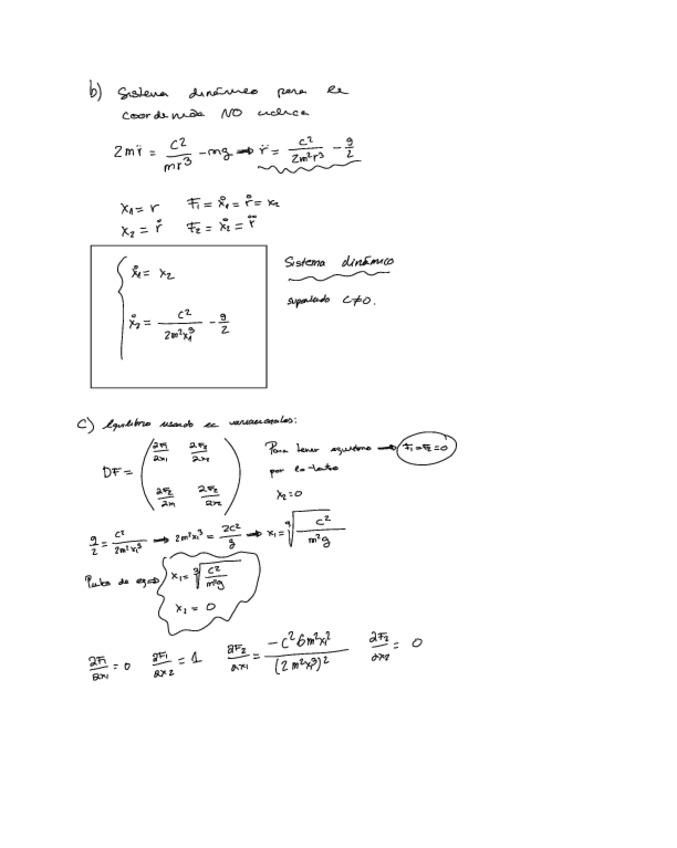 b) Sistema dinámico para la
coordenada NO cíclica
2mr̈ = c²/mr³ - mg → r̈ = c²/2m²r³ - g/2
x₁ = r F₁ = ẋ₁ = ṙ = x₂
x₂ = ṙ F₂ = ẋ₂ = r̈
ẋ₁ = x₂
Sistema dinámico
suponiendo C≠0.
ẋ₂ = c²/2m²x₁³ - g/2
c) Equilibrio usando ec variacionales:
DF = (∂F₁/∂x₁ ∂F₂/∂x₂
∂F₂/∂x₁ ∂F₂/∂x₂)
Para tener equilibrio → F₁=F₂=0
por lo tanto
x₂=0
g/2 = c²/2m²x₁³ → 2m²x₁³ = 2c²/g → x₁ = ³√(c²/m²g)
Punto de x₁ = ³√(c²/m²g)
x₂ = 0
∂F₁/∂x₁ = 0 ∂F₁/∂x₂ = 1 ∂F₂/∂x₁ = -c²6m²x₁²/(2m²x₁³)² ∂F₂/∂x₂ = 0